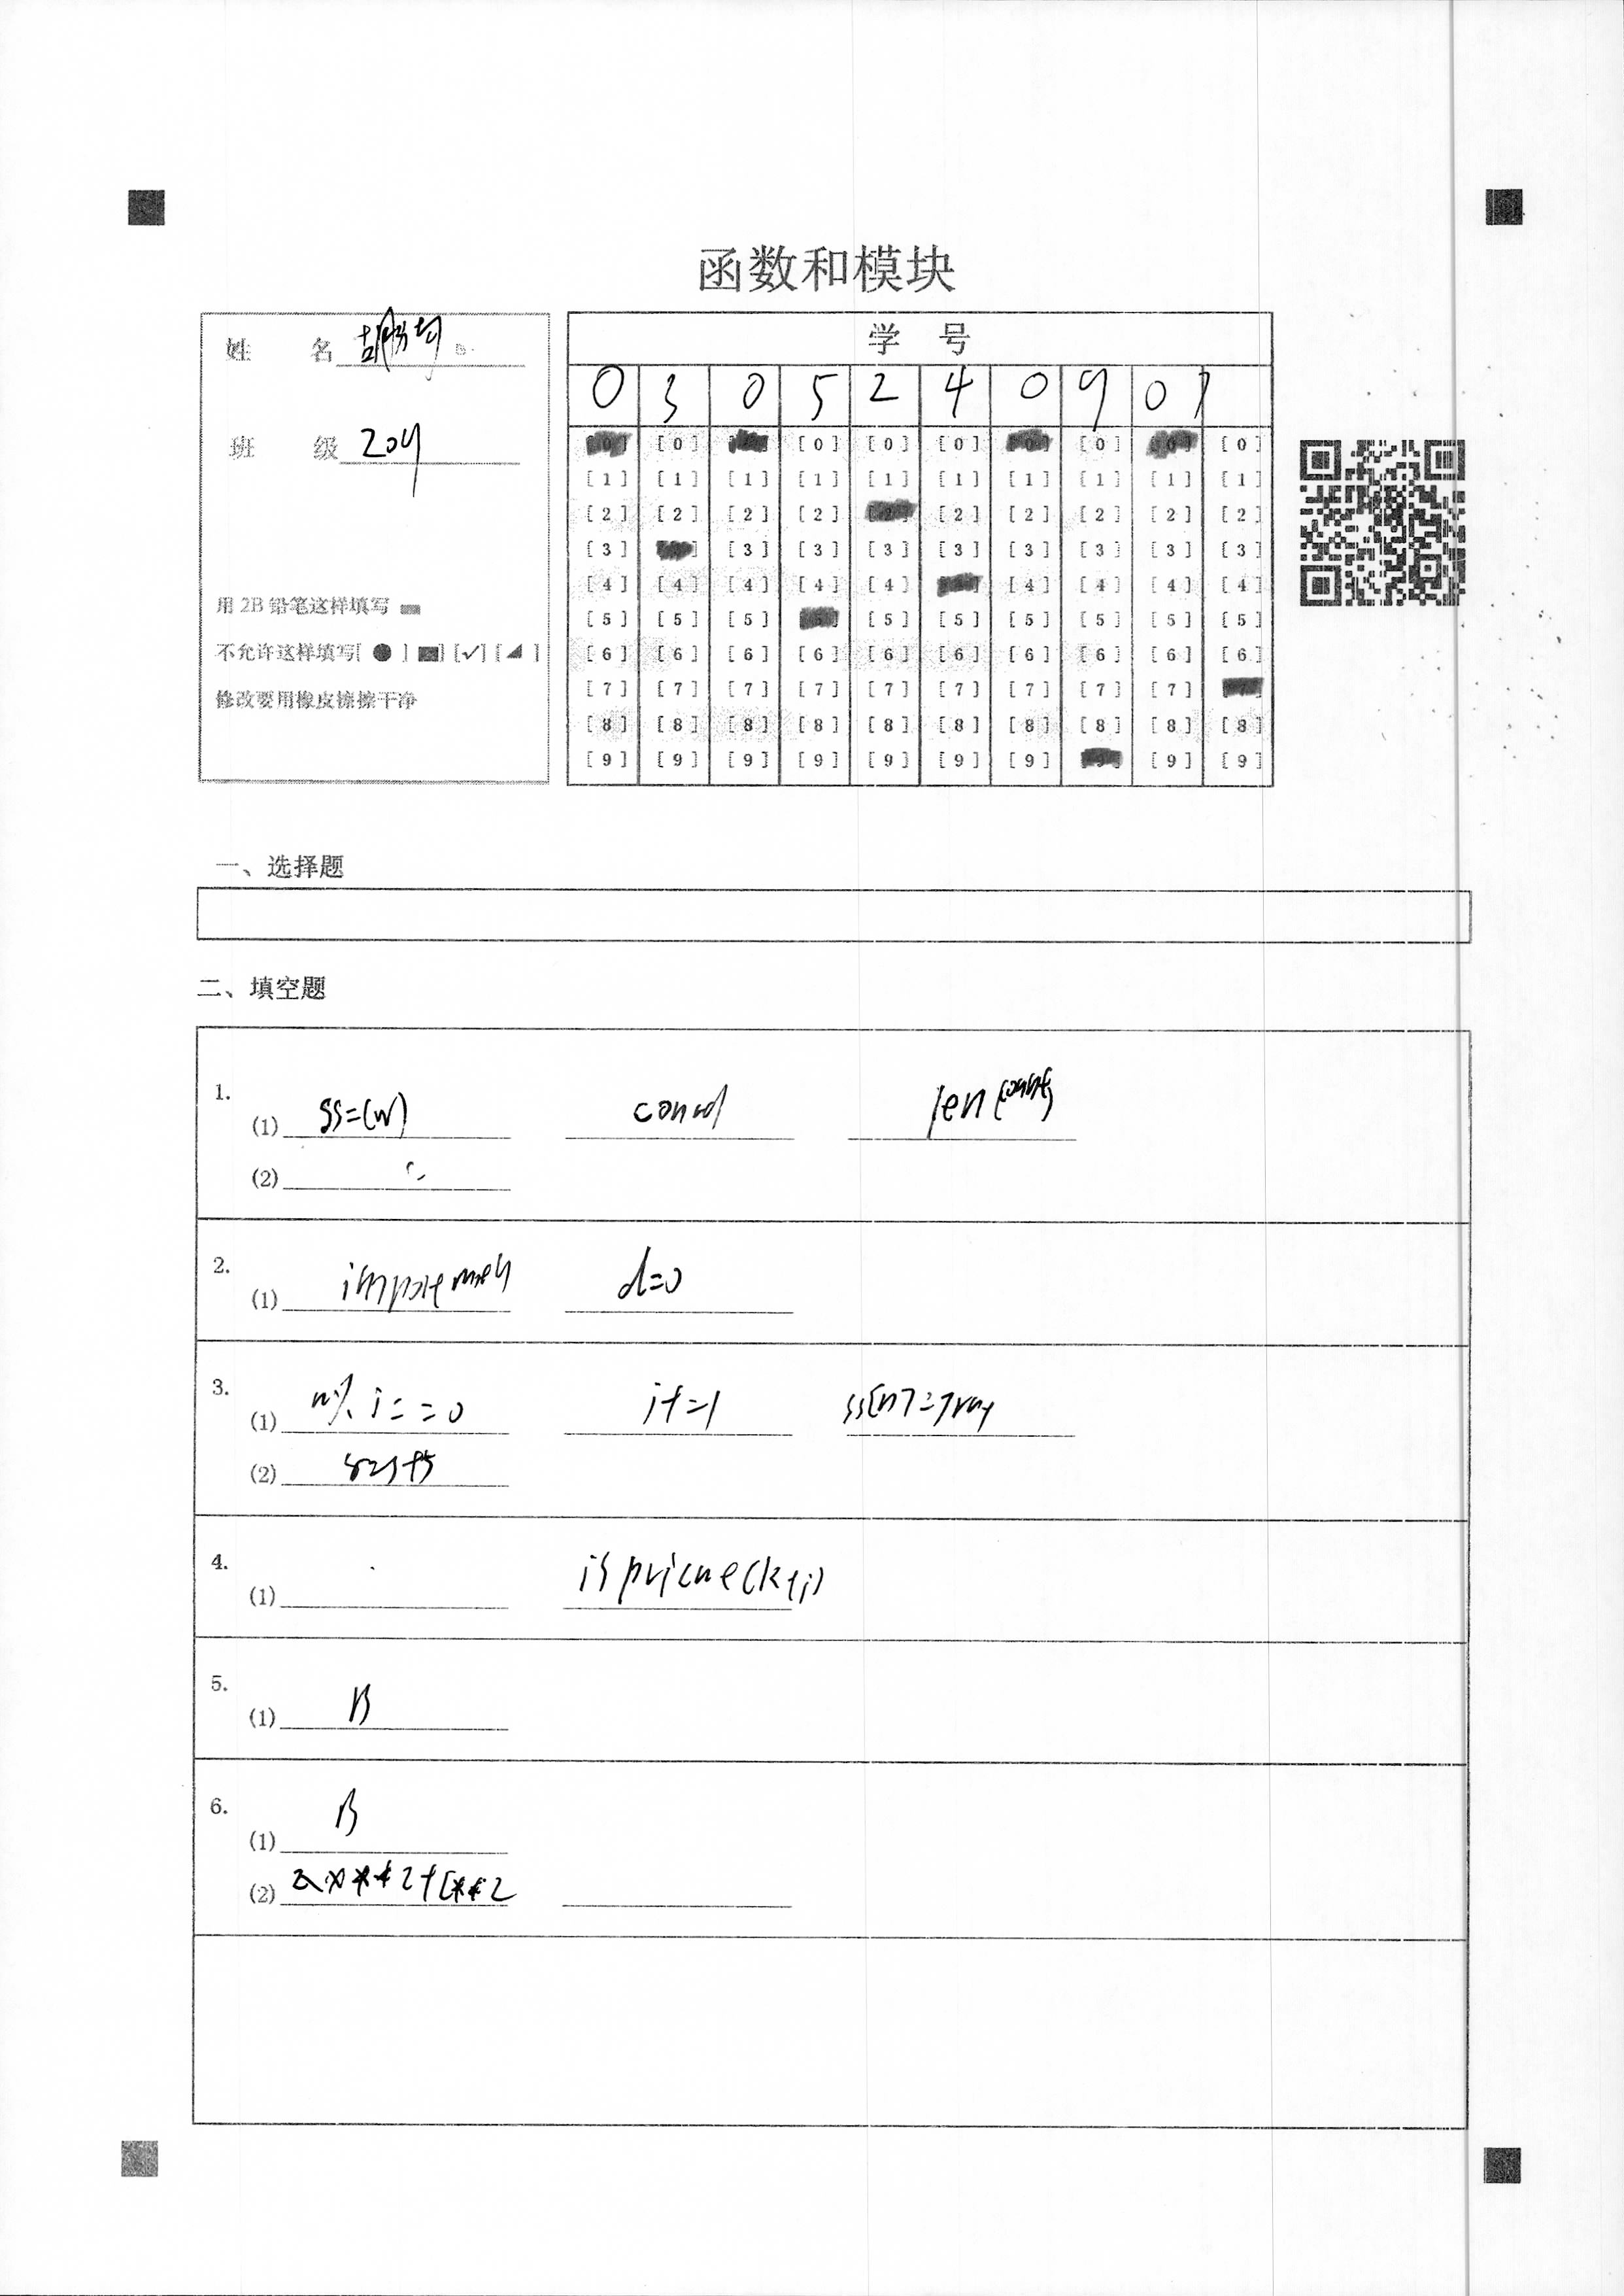 函数和模块
姓 名
班 级 204
用 2B 铅笔这样填写
不允许这样填写[ ● ] [✓] [ ]
修改要用橡皮擦擦干净
学 号
0 3 0 5 2 4 0 9 0 7
[0] [0] [0] [0] [0] [0] [0] [0] [0] [0]
[1] [1] [1] [1] [1] [1] [1] [1] [1] [1]
[2] [2] [2] [2] [2] [2] [2] [2] [2]
[3] [3] [3] [3] [3] [3] [3] [3] [3]
[4] [4] [4] [4] [4] [4] [4] [4] [4]
[5] [5] [5] [5] [5] [5] [5] [5] [5]
[6] [6] [6] [6] [6] [6] [6] [6] [6] [6]
[7] [7] [7] [7] [7] [7] [7] [7] [7]
[8] [8] [8] [8] [8] [8] [8] [8] [8] [8]
[9] [9] [9] [9] [9] [9] [9] [9] [9]
一、选择题
二、填空题
1.
(1) ss=(w) len
(2)
2.
(1) d=0
3.
(1) n% i==0 i+=1
(2)
4.
(1)
5.
(1) B
6.
(1) B
(2)